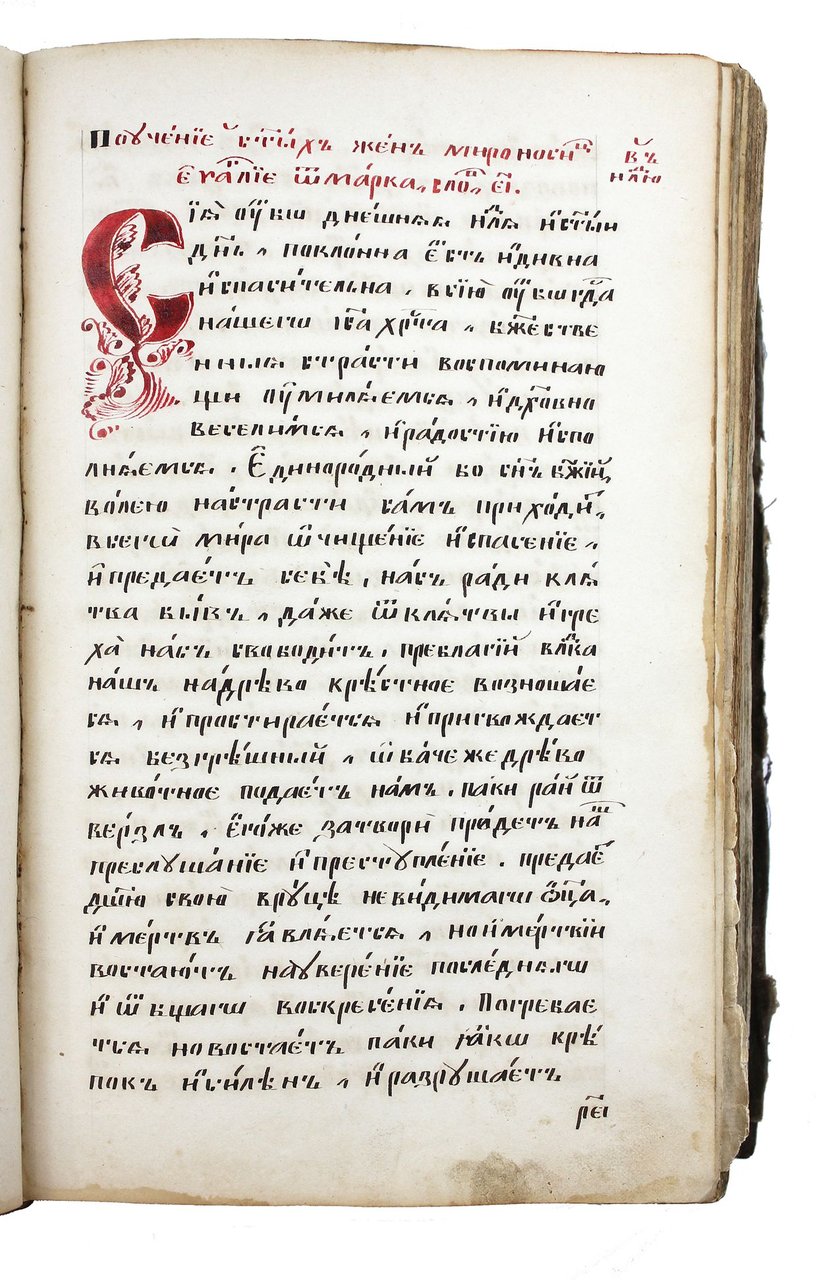 Поуче́нїе с҃ты́хъ же́нъ мѷроно́си́ц въ
є҆ѵⷢ҇лїе ѿ ма́рка, сло́в є҃і. нⷣлю
Сїѧ̀ ᲂу҆́бѡ дне́шнѧѧ нⷣлѧ и҆ ст҃ы́и
дн҃ь, покло́нна є҆́сть и҆ дивна
и҆ спаси́телна, в сїю̀ ᲂу҆́бѡ гдⷭ҇а
на́шегѡ і҆с҃а хрⷭ҇та̀, бж҃е́стве
нныѧ стра́сти воспомина́ю
щи ᲂу҆милѧ́емсѧ, и҆ дх҃о́вно
весели́мсѧ, и҆ ра́достїю и҆спо
лнѧ́емсѧ. Е҆диноро́дный бо сн҃ъ бж҃їй,
во́лею на стра́сти са́мъ прихо́дит,
всегѡ̀ ми́ра ѡ҆чище́нїе и҆ спасе́нїе,
и҆ предае́тъ себѐ, на́съ ра́ди клѧ́
тва бы́въ, да́же ѿ клѧ́твы и҆ гре
ха̀ на́съ свободи́тъ. преблагі́й влⷣка
на́шъ на дрѣ́во кре́стное возноша́е
сѧ, и҆ простирае́тсѧ и҆ пригвождает
сѧ безгрѣ́шный, ѡ҆ба́че же дрѣ́во
живо́тное подае́тъ на́мъ. паки ра́й ѿ
ве́рзлъ. Е҆го́же затвори̑ пра́детъ на́ш
преслуша́нїе и҆ преступле́нїе. предае́
дш҃ю свою̀ в ру́цѣ неви́димагѡ ѻ҆ц҃а̀,
и҆ ме́ртвъ ꙗ҆влѧ́етсѧ, но и҆ ме́ртвїи
востаю́тъ на уве́ренїе после́днѧгѡ
и҆ ѻ҆́бщагѡ воскресе́нїѧ. Погребае
тсѧ но востае́тъ паки ꙗ҆́кѡ крѣ́
покъ и҆ си́ленъ, и҆ разруша́етъ
рє҃і